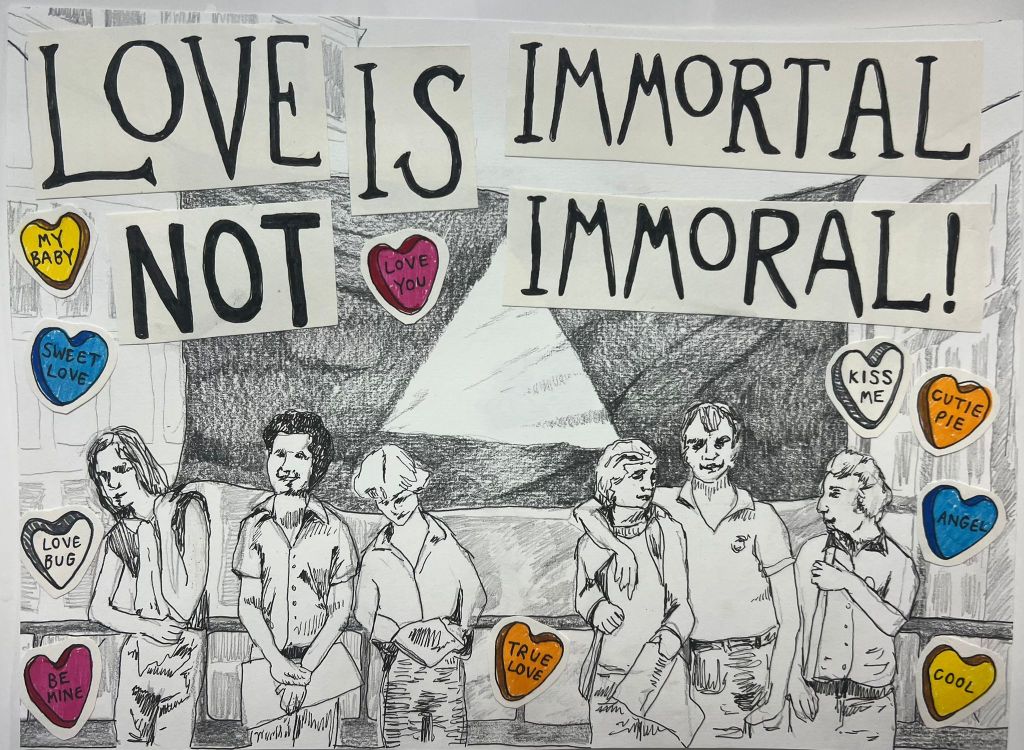 LOVE IS IMMORTAL
NOT IMMORAL!
MY
BABY
LOVE
YOU
SWEET
LOVE
KISS
ME
CUTIE
PIE
LOVE
BUG
ANGEL
BE
MINE
TRUE
LOVE
COOL